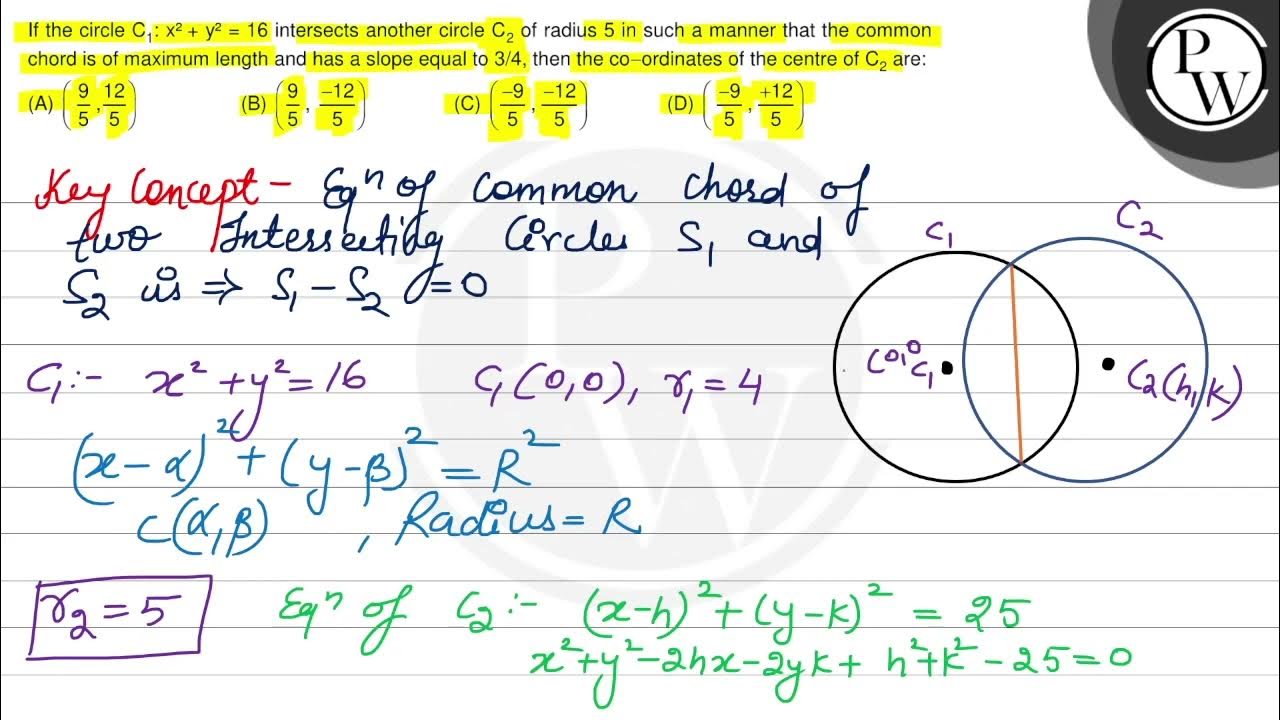 If the circle C₁: x² + y² = 16 intersects another circle C₂ of radius 5 in such a manner that the common
chord is of maximum length and has a slope equal to 3/4, then the co–ordinates of the centre of C₂ are:
(A) (9/5, 12/5) (B) (9/5, −12/5) (C) (−9/5, −12/5) (D) (−9/5, +12/5)
PW
Key Concept – Eqⁿ of common chord of
two Intersecting Circles S₁ and
S₂ is ⇒ S₁ – S₂ = 0
C₁ C₂
C₁ :- x² + y² = 16 C₁ (0,0), r₁ = 4
(0,0) C₁ C₂(h,k)
(x – α)² + (y – β)² = R²
C(α,β) , Radius = R
r₂ = 5 Eqⁿ of C₂ :- (x–h)² + (y–k)² = 25
x² + y² – 2hx – 2yk + h² + k² – 25 = 0